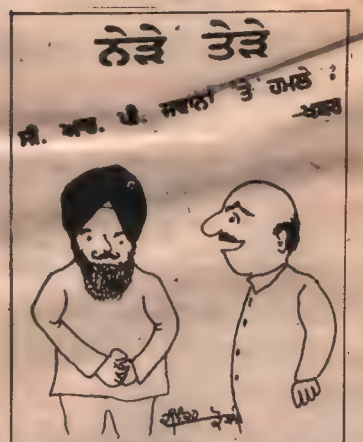 ਨੇੜੇ ਤੇੜੇ
ਸੀ. ਆਰ. ਪੀ. ਜਵਾਨਾਂ ਤੇ ਹਮਲੇ :
ਖ਼ਬਰ